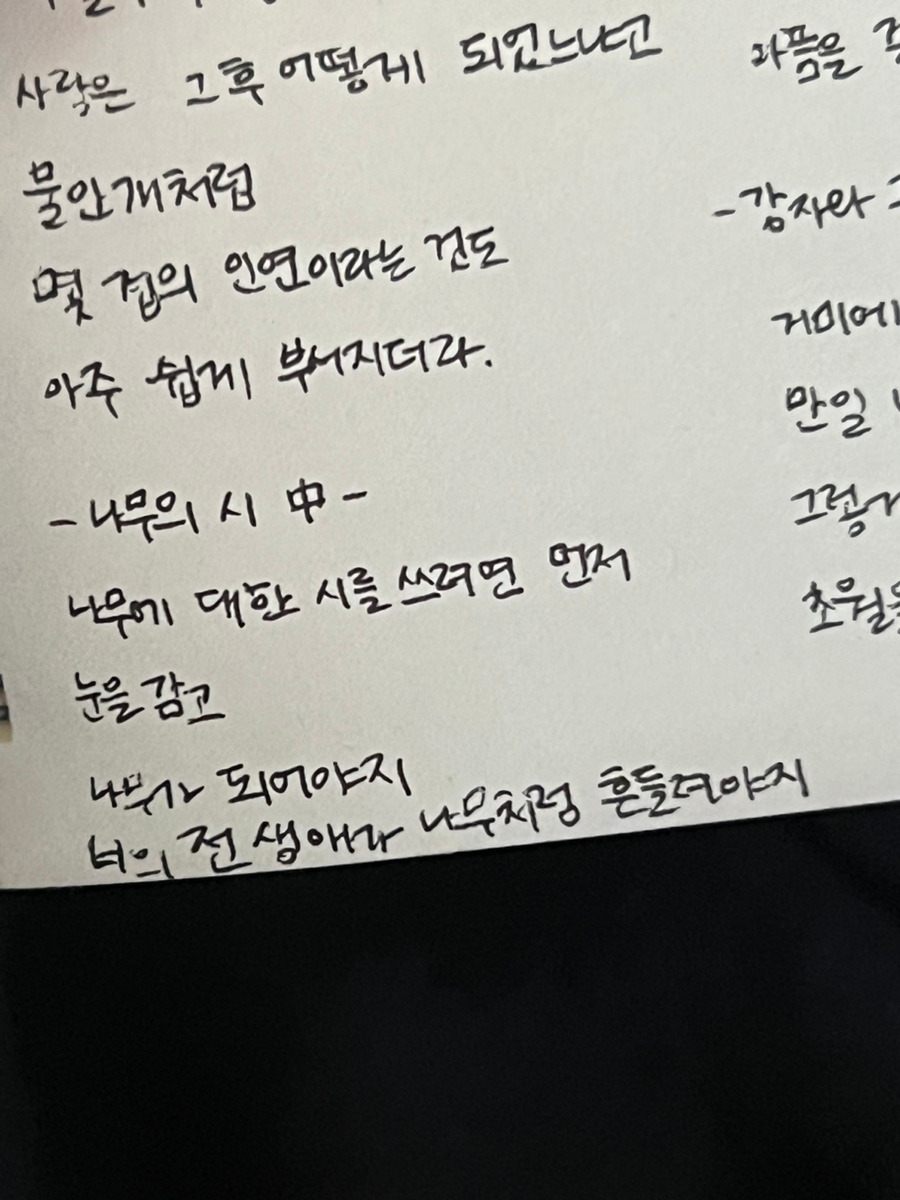 사랑은 그 후 어떻게 되었느냐고
물안개처럼
몇 겁의 인연이라는 것도
아주 쉽게 부서지더라.
-나무의 시 中-
나무에 대한 시를 쓰려면 먼저
눈을 감고
나무가 되어야지
너의 전 생애가 나무처럼 흔들려야지
-감자와
거미에
만일
초월